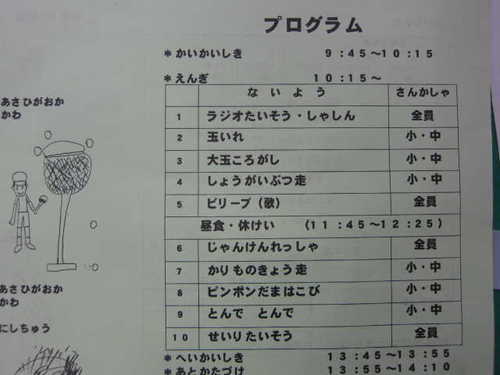 プログラム
＊かいかいしき　9：45～10：15
＊えんぎ　10：15～
ないよう　さんかしゃ
1　ラジオたいそう・しゃしん　全員
2　玉いれ　小・中
3　大玉ころがし　小・中
4　しょうがいぶつ走　小・中
5　ビリーブ（歌）　全員
昼食・休けい　（11：45～12：25）
6　じゃんけんれっしゃ　全員
7　かりものきょう走　小・中
8　ピンポンだまはこび　小・中
9　とんで　とんで　小・中
10　せいりたいそう　全員
＊へいかいしき　13：45～13：55
＊あとかたづけ　13：55～14：10
あさひがおか
かわ
あさひがおか
かわ
にしちゅう